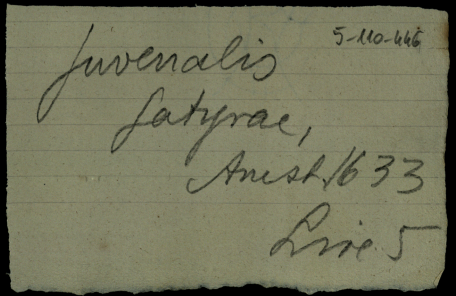 5-110-446
Juvenalis
Satyrae,
Amst. 1633
Livre 5